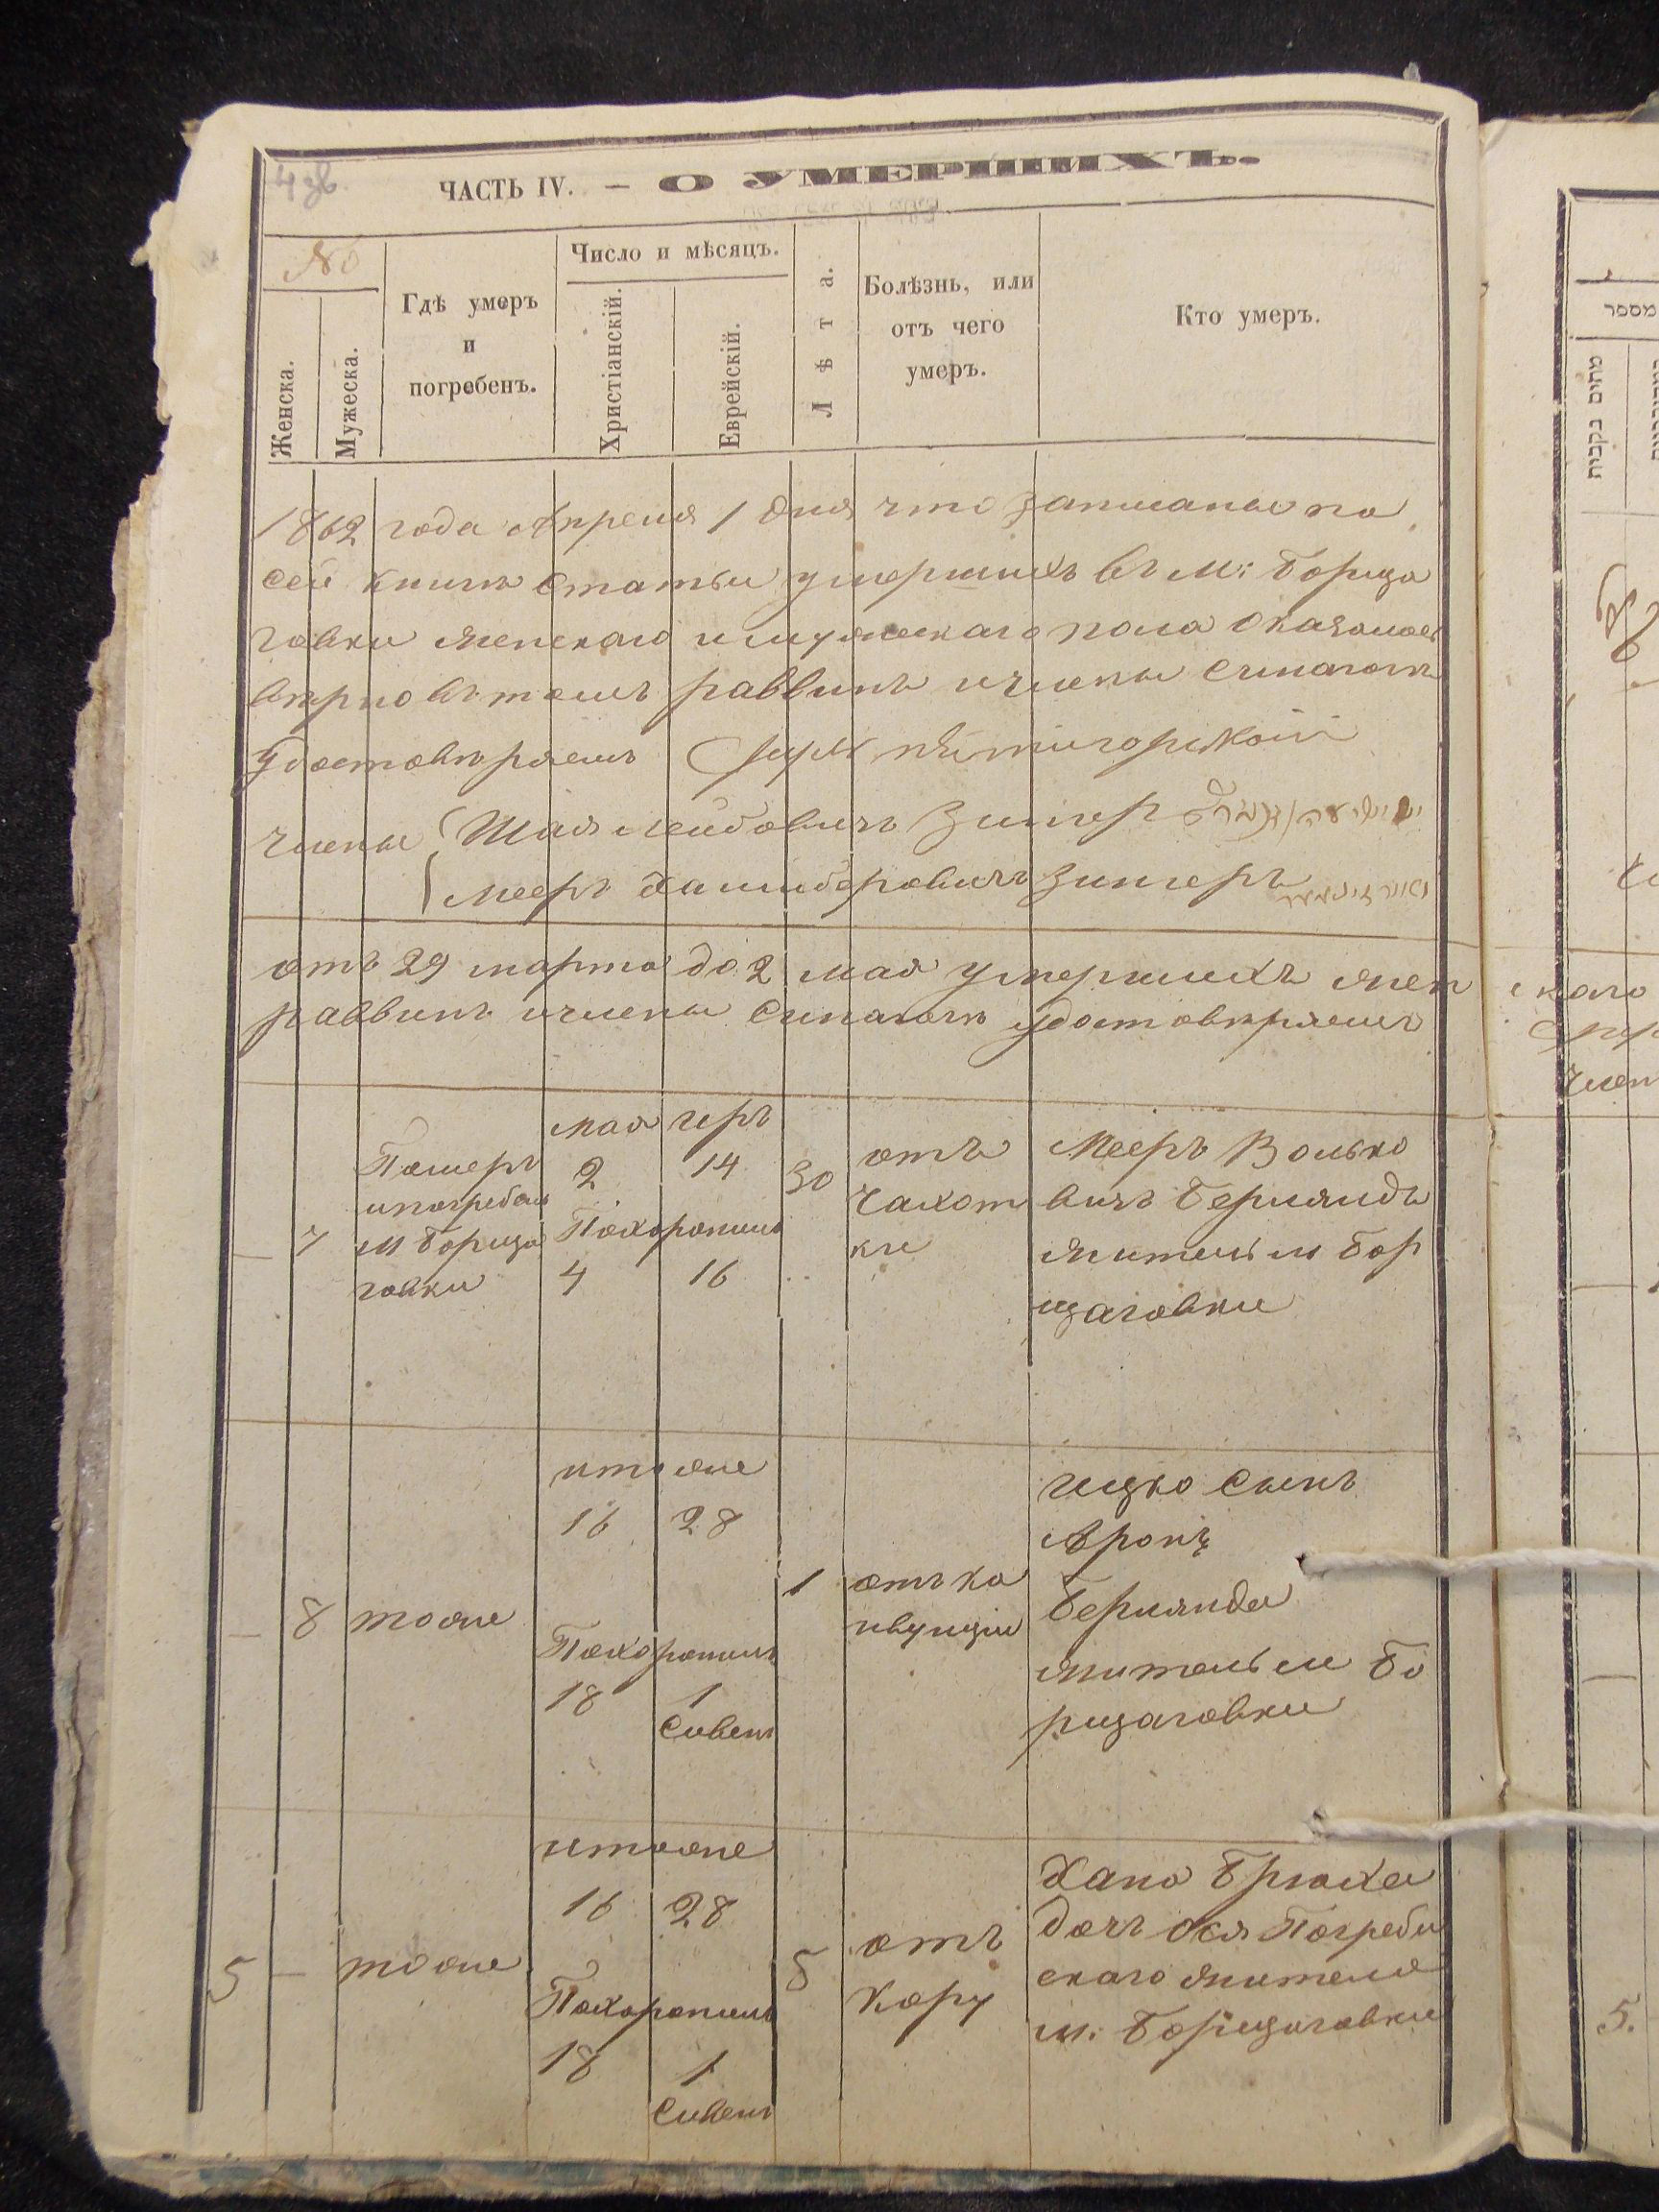 4 зв.
ЧАСТЬ IV. — О УМЕРШИХЪ.
№
Женска.
Мужеска.
Гдѣ умеръ
и
погребенъ.
Число и мѣсяцъ.
Христіанскій.
Еврейскій.
Лѣта.
Болѣзнь, или
отъ чего
умеръ.
Кто умеръ.
1862 года Апреля 1 дня что записаные по
сей книгѣ статьи умершихъ въ м: Борща
говки женскаго и мужескаго пола оказалось
вѣрно въ томъ раввинъ и члены синагоги
удостовѣряемъ
члены Шая Лейбовичъ Зингер
Мееръ Хаимберовичъ Зингеръ
отъ 29 марта до 2 мая умершихъ жен
раввинъ и члены синагоги удостовѣряемъ
—
7
Померъ
и погребенъ
м Борща
говки
мая иеръ
2 14
Похоронили
4 16
30
отъ
чахот
ки
Мееръ Волько
вичъ Берляндъ
житель м Бор
щаговки
—
8
тоже
итоже
16 28
Похоронили
18 1
Сивенъ
1
отъ ко
нвулціи
ицко сынъ
Арона
Берлянда
житель м Бо
рщаговки
5
—
тоже
итоже
16 28
Похоронили
18 1
Сивенъ
5
отъ
кору
Хана Брюха
доч Ося Погреби
скаго жителя
м. Борщаговки
מספר
5.